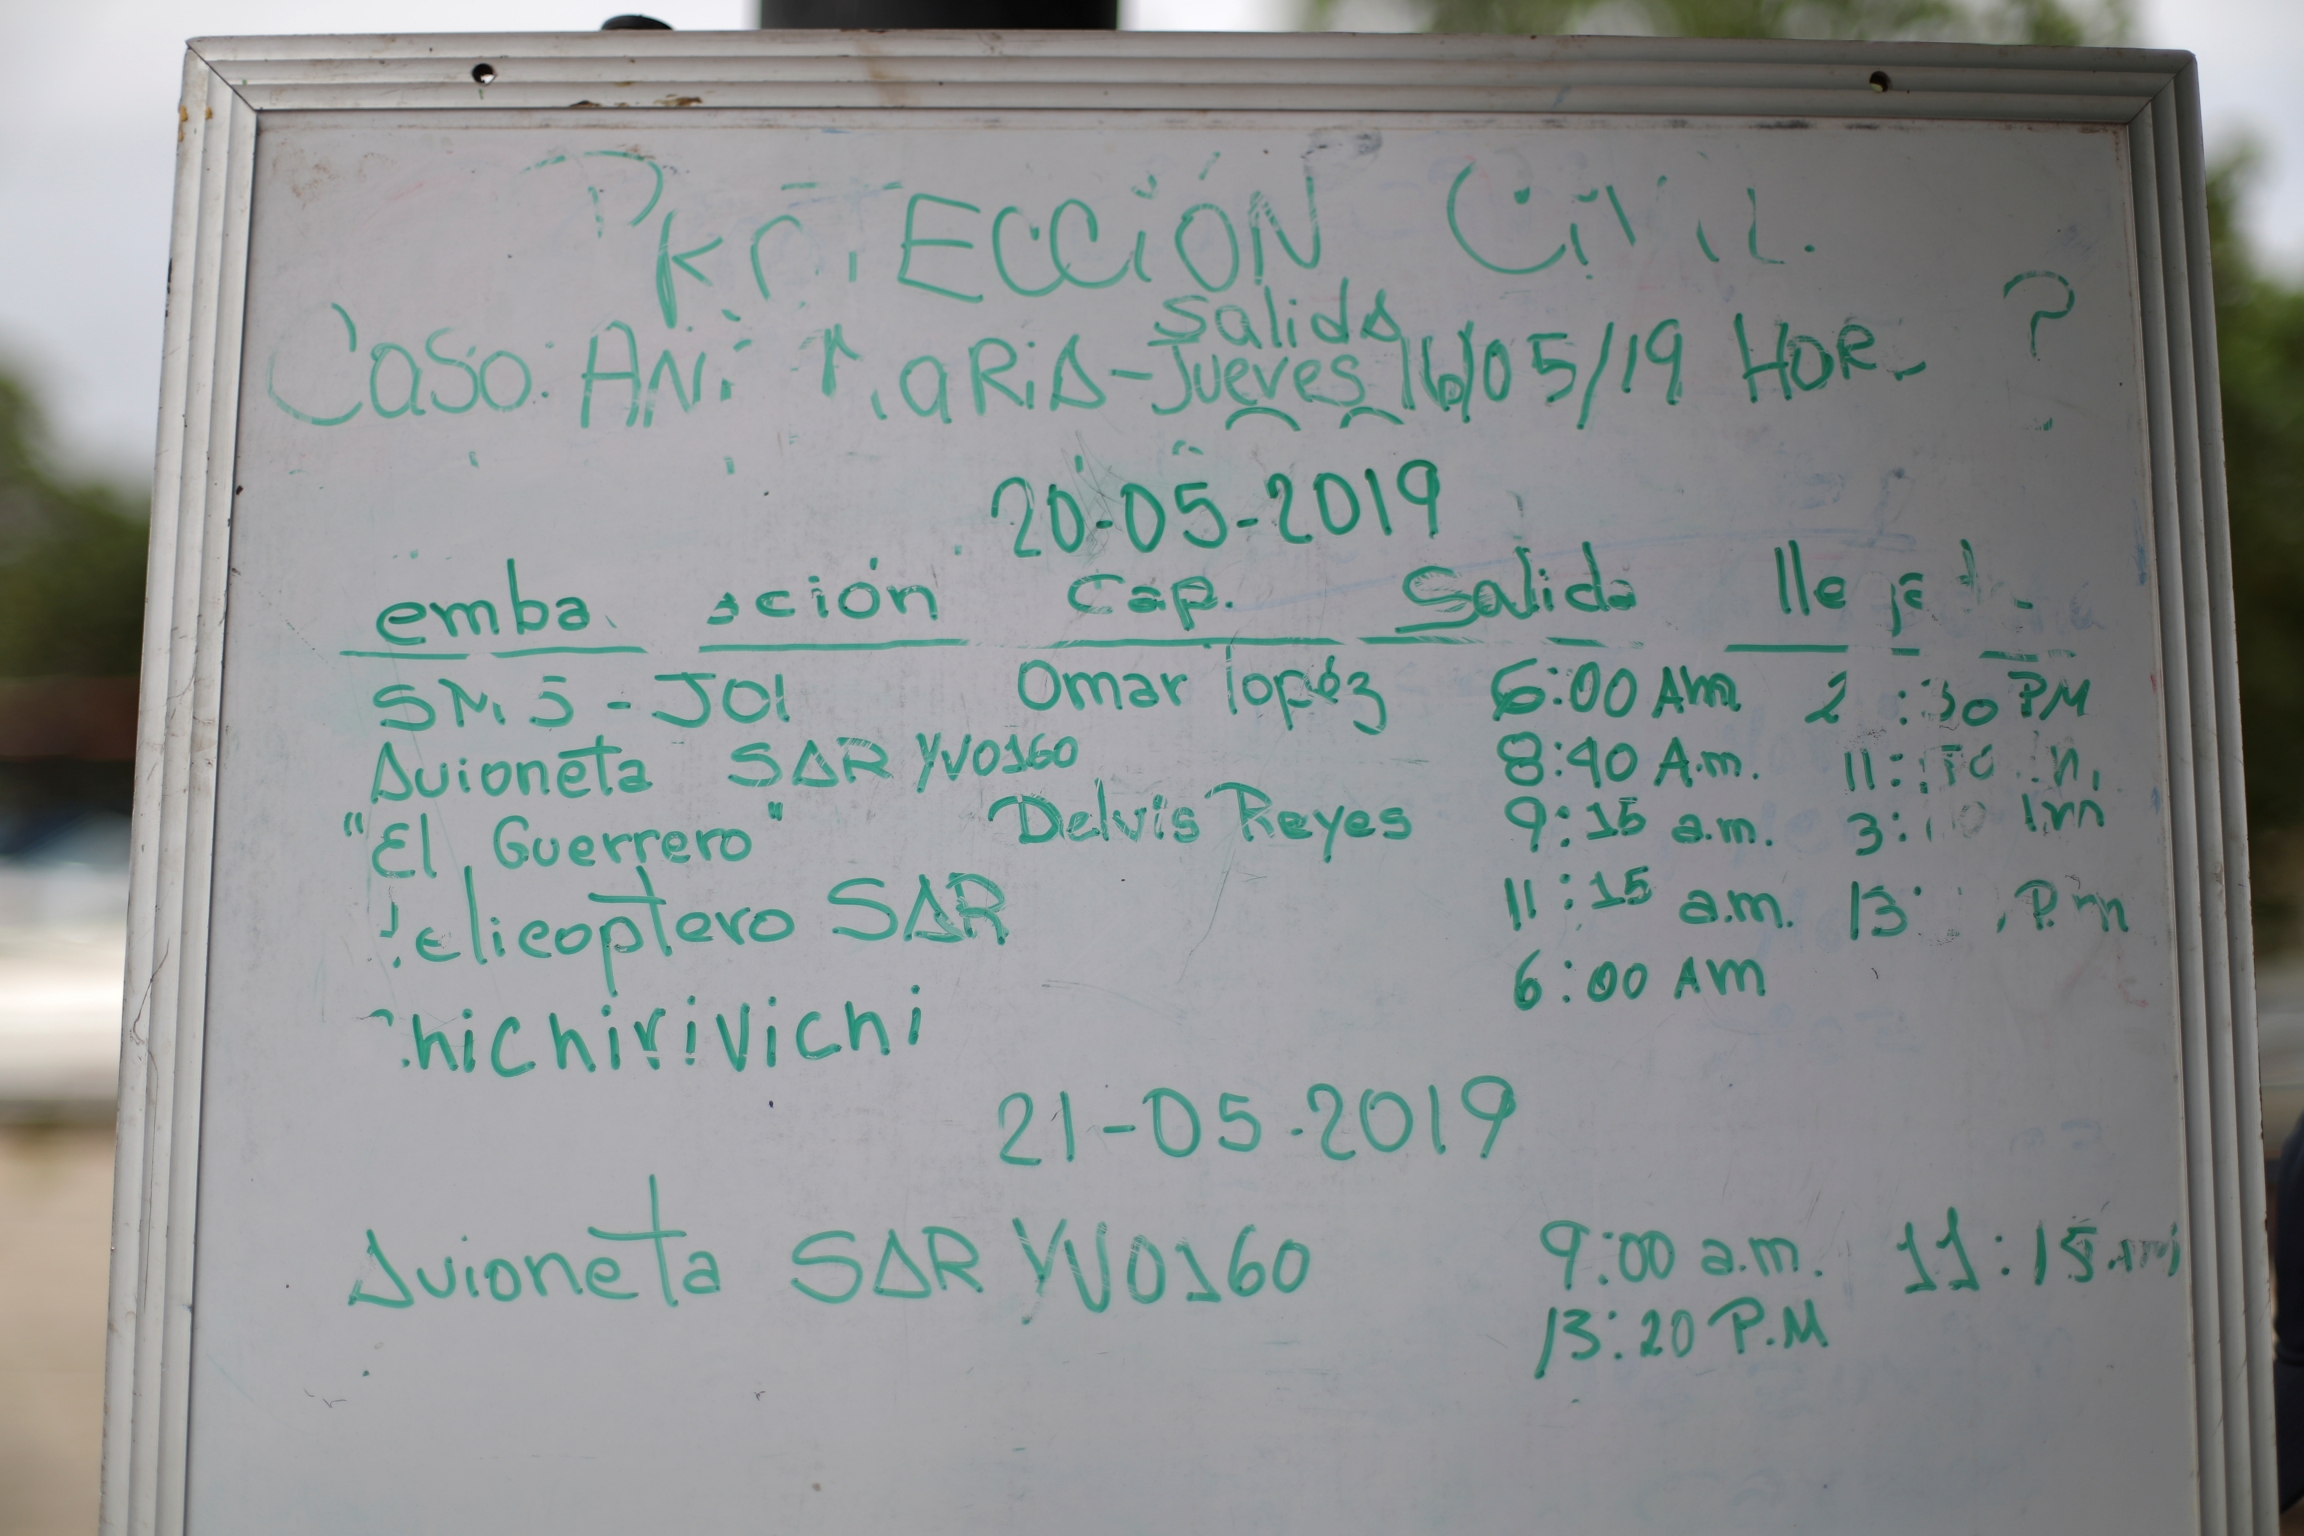 PROTECCIÓN CIVIL.
Caso: ANA MaRiA - Salida Jueves 16/05/19 HORA ?
20-05-2019
embarcación Cap. Salida llegada
SMS-J01 Omar lopéz 6:00 Am 2:30 PM
Avioneta SAR YV0160 8:40 A.m.
"El Guerrero" Delvis Reyes 9:15 a.m.
Helicoptero SAR 11:15 a.m.
ChiChiriVichi 6:00 AM
21-05-2019
Avioneta SAR YV0160 9:00 a.m. 11:15 am
13:20 P.M